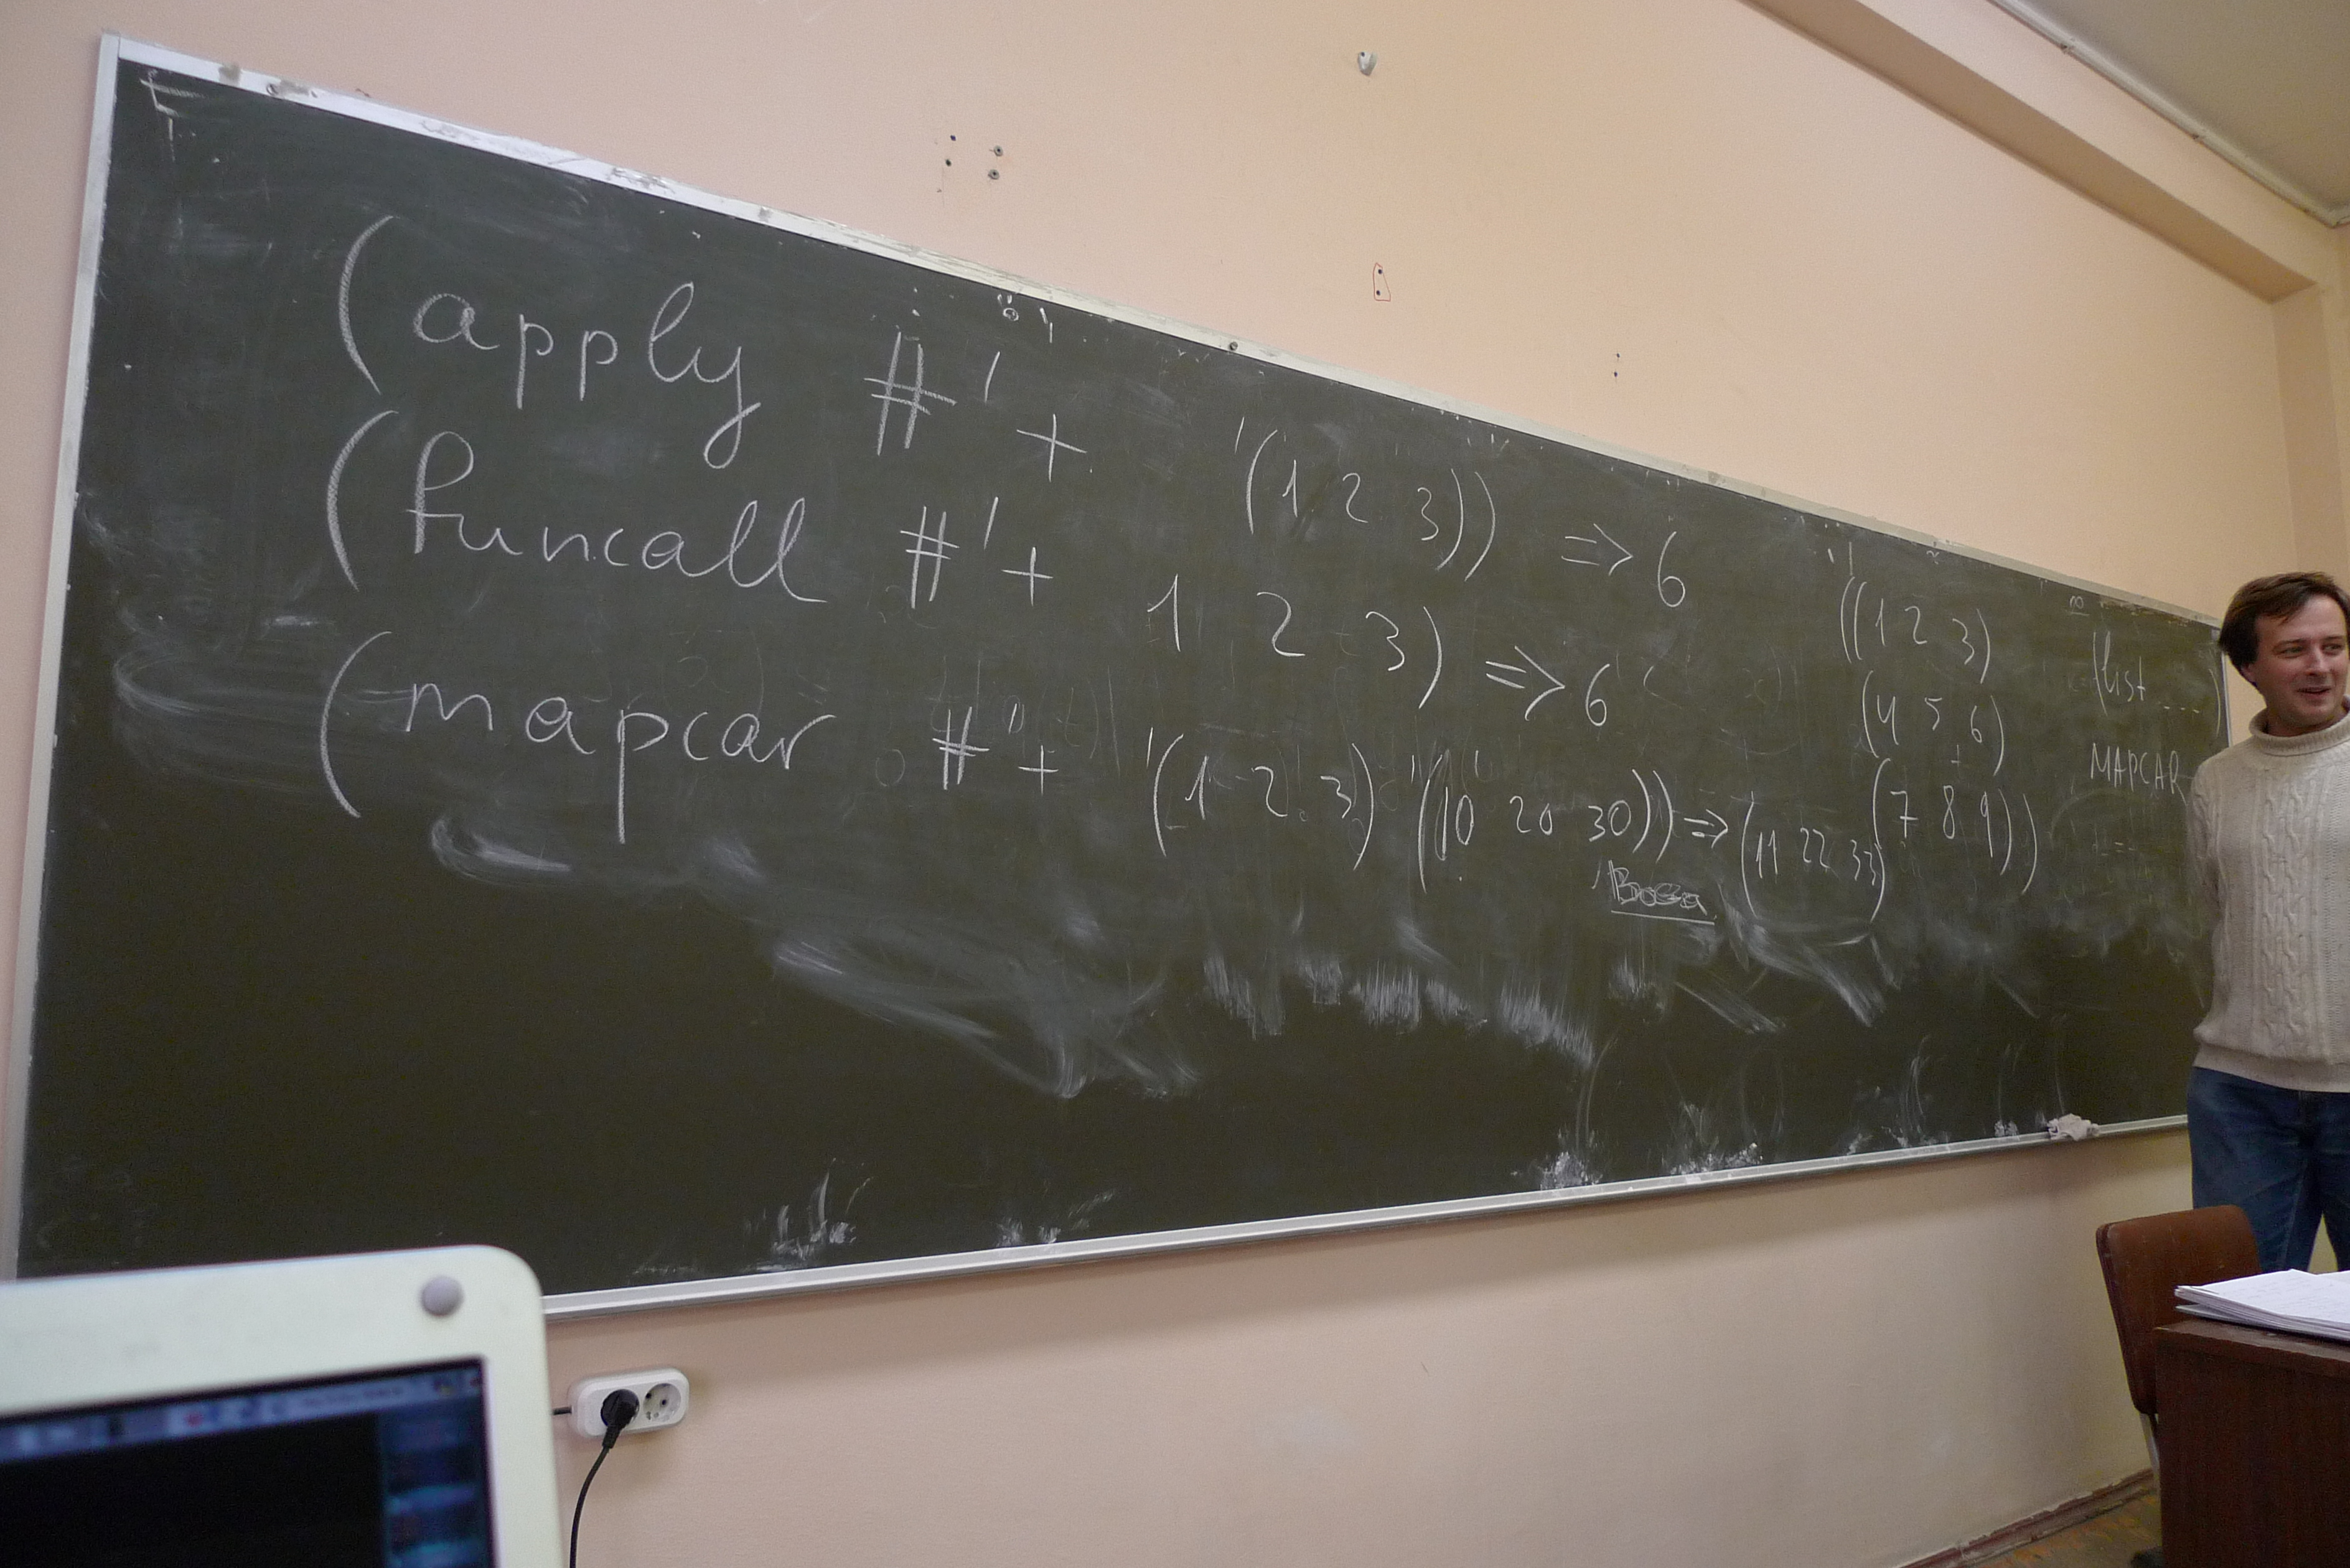 (apply #'+ '(1 2 3)) => 6
(funcall #'+ 1 2 3) => 6
(mapcar #'+ '(1 2 3) '(10 20 30)) => (11 22 33)
((1 2 3)
(4 5 6)
(7 8 9))
(list ....)
MAPCAR